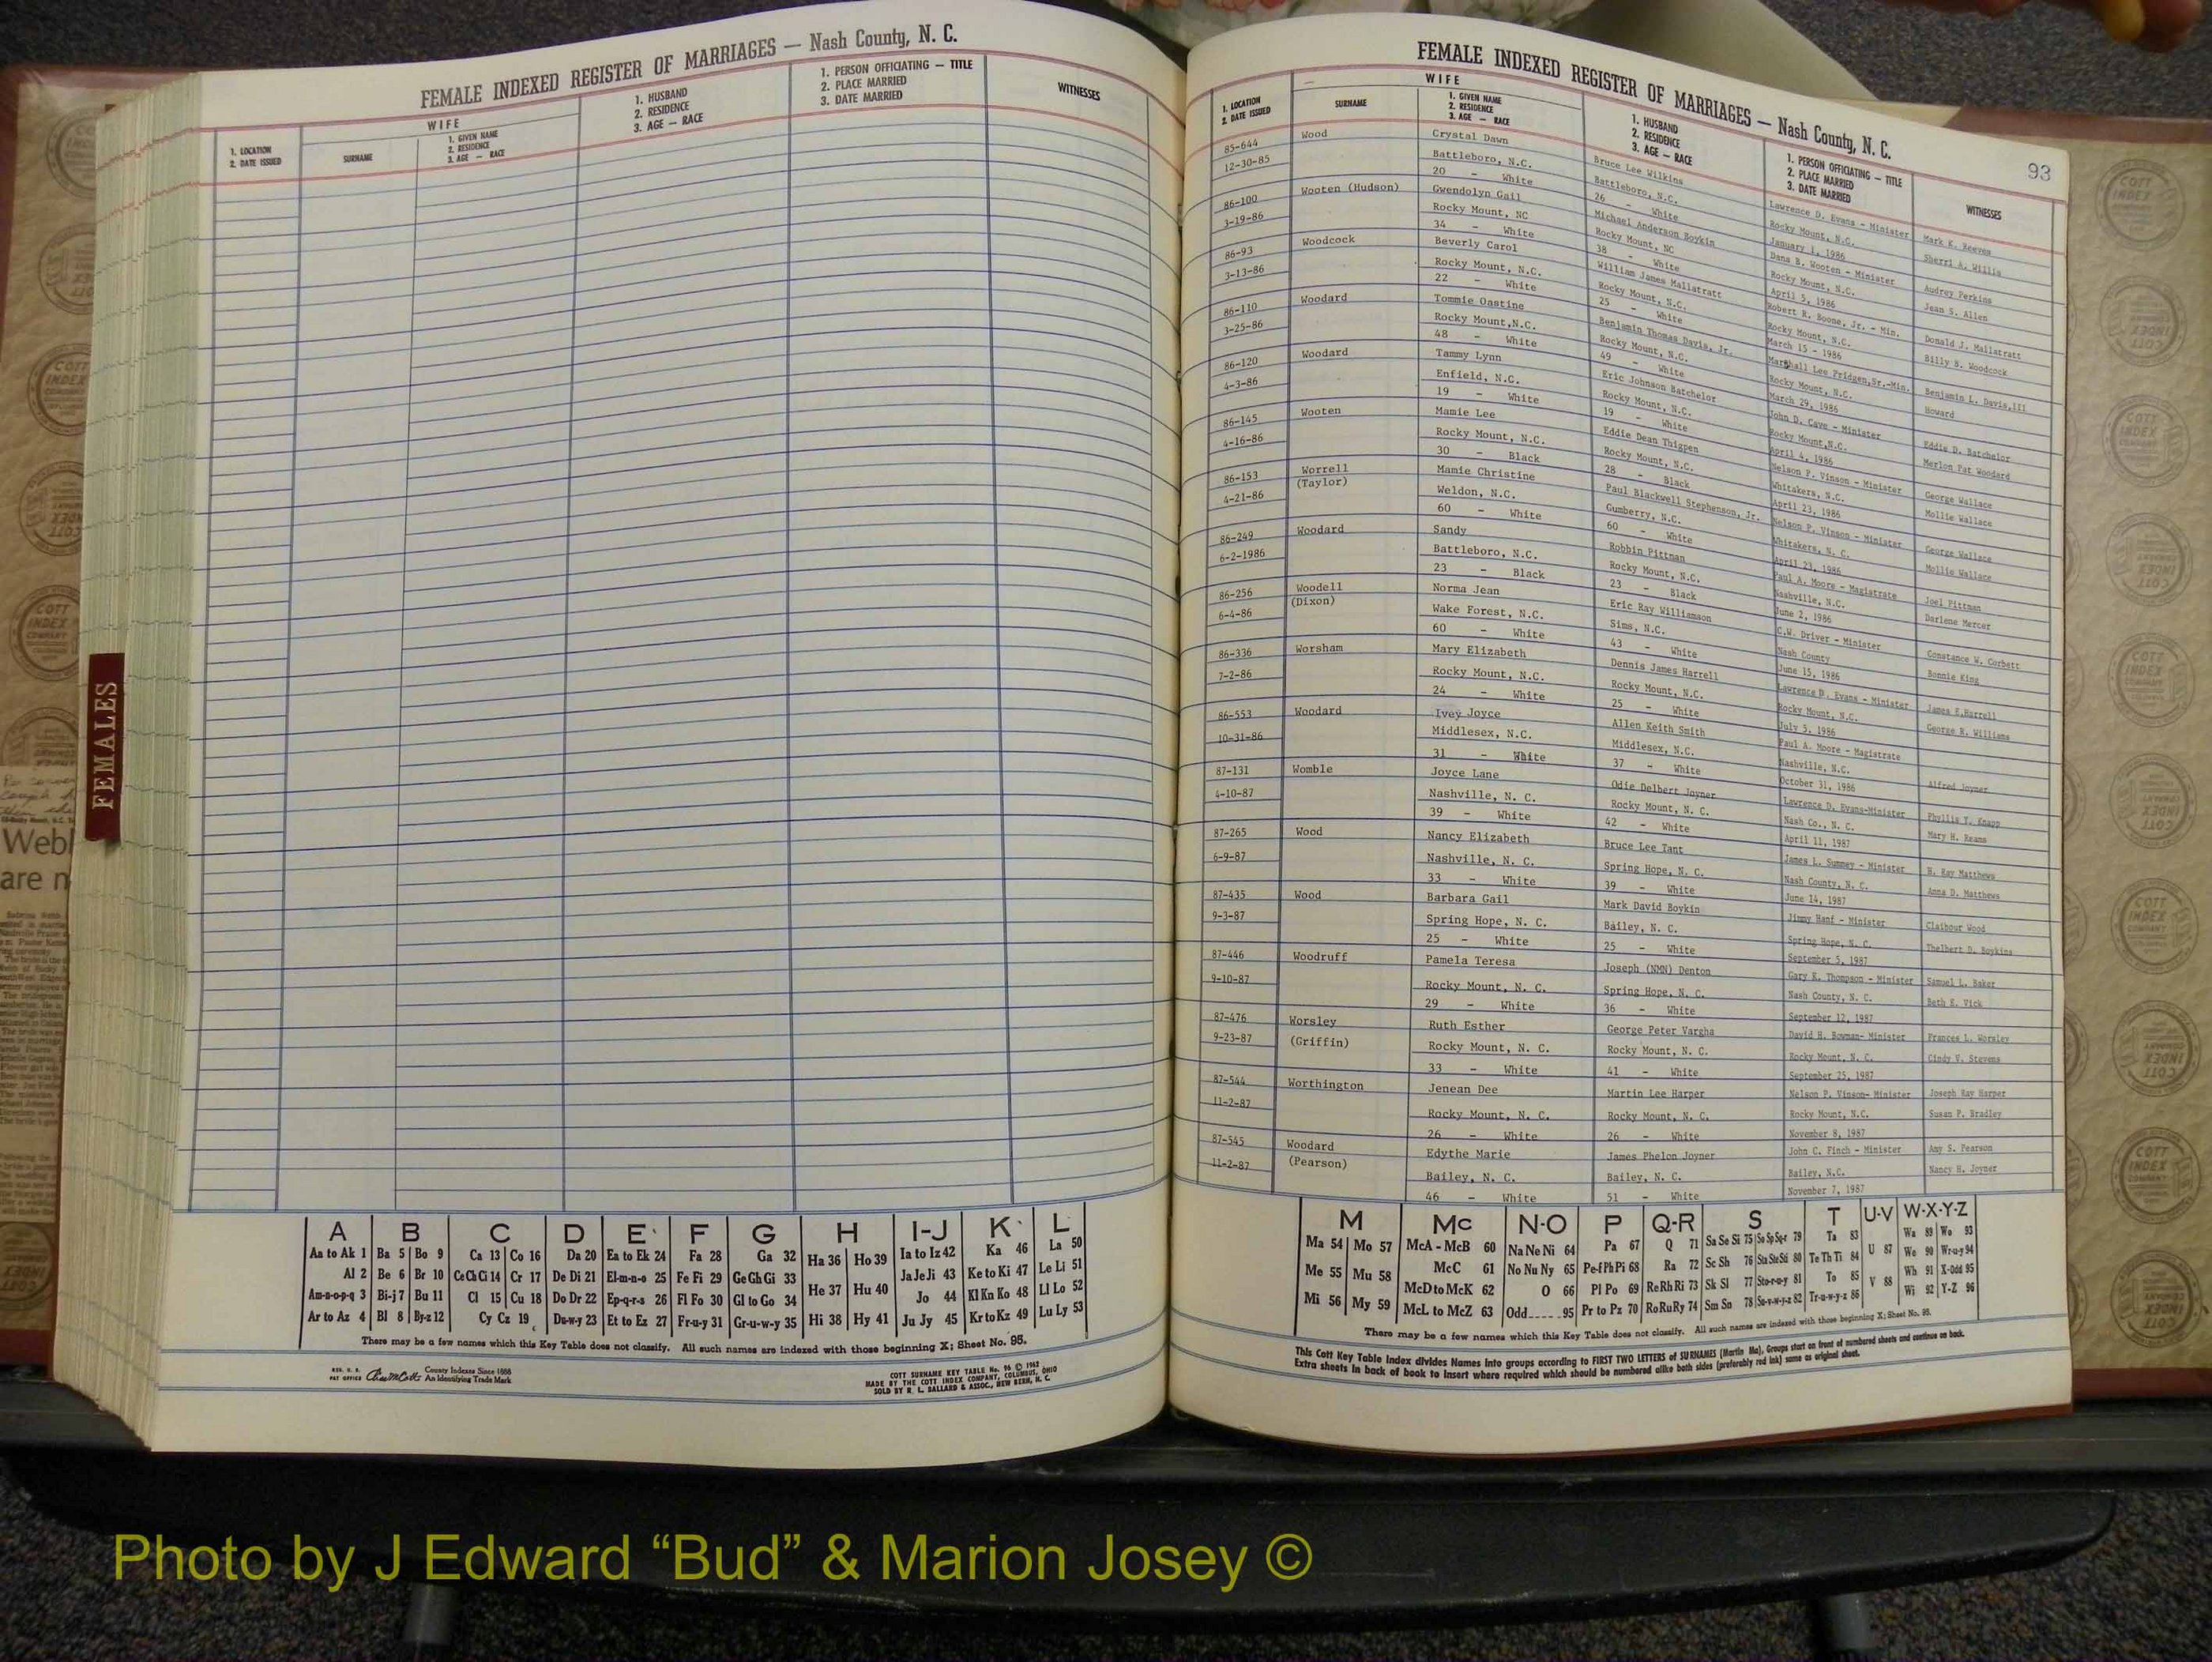 FEMALE INDEXED REGISTER OF MARRIAGES — Nash County, N. C.
1. LOCATION
2. DATE ISSUED
WIFE
SURNAME
1. GIVEN NAME
2. RESIDENCE
3. AGE — RACE
1. HUSBAND
2. RESIDENCE
3. AGE — RACE
1. PERSON OFFICIATING — TITLE
2. PLACE MARRIED
3. DATE MARRIED
WITNESSES
FEMALES
Webl
are n
A B C D E F G H I-J K L
Aa to Ak 1 Ba 5 Bo 9 Ca 13 Co 16 Da 20 Ea to Ek 24 Fa 28 Ga 32 Ha 36 Ho 39 Ia to Iz 42 Ka 46 La 50
Al 2 Be 6 Br 10 Ce Ch Ci 14 Cr 17 De Di 21 El-m-n-o 25 Fe Fi 29 Ge Gh Gi 33 He 37 Hu 40 Ja Je Ji 43 Ke to Ki 47 Le Li 51
Am-n-o-p-q 3 Bi-j 7 Bu 11 Cl 15 Cu 18 Do Dr 22 Ep-q-r-s 26 Fl Fo 30 Gl to Go 34 Hi 38 Hy 41 Jo 44 Kl Kn Ko 48 Ll Lo 52
Ar to Az 4 Bl 8 By-z 12 Cy Cz 19 Du-w-y 23 Et to Ez 27 Fr-u-y 31 Gr-u-w-y 35 Ju Jy 45 Kr to Kz 49 Lu Ly 53
There may be a few names which this Key Table does not classify. All such names are indexed with those beginning X; Sheet No. 95.
REG. U. S.
PAT OFFICE
County Indexes Since 1888
An Identifying Trade Mark
COTT SURNAME KEY TABLE No. 96 © 1962
MADE BY THE COTT INDEX COMPANY, COLUMBUS, OHIO
SOLD BY R. L. BALLARD & ASSOC., NEW BERN, N. C.
FEMALE INDEXED REGISTER OF MARRIAGES — Nash County, N. C.
93
1. LOCATION
2. DATE ISSUED
WIFE
SURNAME
1. GIVEN NAME
2. RESIDENCE
3. AGE — RACE
1. HUSBAND
2. RESIDENCE
3. AGE — RACE
1. PERSON OFFICIATING — TITLE
2. PLACE MARRIED
3. DATE MARRIED
WITNESSES
85-644 Wood Crystal Dawn Bruce Lee Wilkins Lawrence D. Evans - Minister Mark K. Reeves
12-30-85 Battleboro, N.C. Battleboro, N.C. Rocky Mount, N.C. Sherri A. Willis
20 - White 26 - White January 1, 1986
86-100 Wooten (Hudson) Gwendolyn Gail Michael Anderson Boykin Dana B. Wooten - Minister Audrey Perkins
3-19-86 Rocky Mount, NC Rocky Mount, NC Rocky Mount, N.C. Jean S. Allen
34 - White 38 - White April 5, 1986
86-93 Woodcock Beverly Carol William James Mallatratt Robert R. Boone, Jr. - Min. Donald J. Mallatratt
3-13-86 Rocky Mount, N.C. Rocky Mount, N.C. Rocky Mount, N.C. Billy B. Woodcock
22 - White 25 - White March 15 - 1986
86-110 Woodard Tommie Oastine Benjamin Thomas Davis, Jr. Marshall Lee Pridgen,Sr.-Min. Benjamin L. Davis,III
3-25-86 Rocky Mount,N.C. Rocky Mount, N.C. Rocky Mount, N.C. Howard
48 - White 49 - White March 29, 1986
86-120 Woodard Tammy Lynn Eric Johnson Batchelor John D. Cave - Minister Eddie D. Batchelor
4-3-86 Enfield, N.C. Rocky Mount, N.C. Rocky Mount,N.C. Merlon Pat Woodard
19 - White 19 - White April 4, 1986
86-145 Wooten Mamie Lee Eddie Dean Thigpen Nelson P. Vinson - Minister George Wallace
4-16-86 Rocky Mount, N.C. Rocky Mount, N.C. Whitakers, N.C. Mollie Wallace
30 - Black 28 - Black April 23, 1986
86-153 Worrell Mamie Christine Paul Blackwell Stephenson, Jr. Nelson P. Vinson - Minister George Wallace
4-21-86 (Taylor) Weldon, N.C. Gumberry, N.C. Whitakers, N. C. Mollie Wallace
60 - White 60 - White April 23, 1986
86-249 Woodard Sandy Robbin Pittman Paul A. Moore - Magistrate Joel Pittman
6-2-1986 Battleboro, N.C. Rocky Mount, N.C. Nashville, N.C. Darlene Mercer
23 - Black 23 - Black June 2, 1986
86-256 Woodell Norma Jean Eric Ray Williamson C.W. Driver - Minister Constance W. Corbett
6-4-86 (Dixon) Wake Forest, N.C. Sims, N.C. Nash County Bonnie King
60 - White 43 - White June 15, 1986
86-336 Worsham Mary Elizabeth Dennis James Harrell Lawrence D. Evans - Minister James E.Harrell
7-2-86 Rocky Mount, N.C. Rocky Mount, N.C. Rocky Mount, N.C. George R. Williams
24 - White 25 - White July 5, 1986
86-553 Woodard Ivey Joyce Allen Keith Smith Paul A. Moore - Magistrate Alfred Joyner
10-31-86 Middlesex, N.C. Middlesex, N.C. Nashville, N.C.
31 - White 37 - White October 31, 1986
87-131 Womble Joyce Lane Odie Delbert Joyner Lawrence D. Evans-Minister Phyllis Y. Knapp
4-10-87 Nashville, N. C. Rocky Mount, N. C. Nash Co., N. C. Mary H. Reams
39 - White 42 - White April 11, 1987
87-265 Wood Nancy Elizabeth Bruce Lee Tant James L. Summey - Minister H. Ray Matthews
6-9-87 Nashville, N. C. Spring Hope, N. C. Nash County, N. C. Anna D. Matthews
33 - White 39 - White June 14, 1987
87-435 Wood Barbara Gail Mark David Boykin Jimmy Hanf - Minister Claibour Wood
9-3-87 Spring Hope, N. C. Bailey, N. C. Spring Hope, N. C. Thelbert D. Boykins
25 - White 25 - White September 5, 1987
87-446 Woodruff Pamela Teresa Joseph (NMN) Denton Gary K. Thompson - Minister Samuel L. Baker
9-10-87 Rocky Mount, N. C. Spring Hope, N. C. Nash County, N. C. Beth E. Vick
29 - White 36 - White September 12, 1987
87-476 Worsley Ruth Esther George Peter Vargha David H. Bowman- Minister Frances L. Worsley
9-23-87 (Griffin) Rocky Mount, N. C. Rocky Mount, N. C. Rocky Mount, N. C. Cindy V. Stevens
33 - White 41 - White September 25, 1987
87-544 Worthington Jenean Dee Martin Lee Harper Nelson P. Vinson- Minister Joseph Ray Harper
11-2-87 Rocky Mount, N. C. Rocky Mount, N. C. Rocky Mount, N.C. Susan P. Bradley
26 - White 26 - White November 8, 1987
87-545 Woodard Edythe Marie James Phelon Joyner John C. Finch - Minister Amy S. Pearson
11-2-87 (Pearson) Bailey, N. C. Bailey, N. C. Bailey, N.C. Nancy H. Joyner
46 - White 51 - White November 7, 1987
M Mc N-O P Q-R S T U-V W-X-Y-Z
Ma 54 Mo 57 McA - McB 60 Na Ne Ni 64 Pa 67 Q 71 Sa Se Si 75 So Sp Sq-r 79 Ta 83 U 87 Wa 89 Wo 93
Me 55 Mu 58 McC 61 No Nu Ny 65 Pe-f Ph Pi 68 Ra 72 Sc Sh 76 Sta Ste Sti 80 Te Th Ti 84 V 88 We 90 Wr-u-y 94
Mi 56 My 59 McD to McK 62 O 66 Pl Po 69 Re Rh Ri 73 Sk Sl 77 Sto-r-u-y 81 To 85 Wh 91 X-Odd 95
McL to McZ 63 Odd 95 Pr to Pz 70 Ro Ru Ry 74 Sm Sn 78 Su-v-w-y-z 82 Tr-u-w-y-z 86 Wi 92 Y-Z 96
There may be a few names which this Key Table does not classify. All such names are indexed with those beginning X; Sheet No. 95.
This Cott Key Table Index divides Names into groups according to FIRST TWO LETTERS of SURNAMES (Martin Ma). Groups start on front of numbered sheets and continue on back.
Extra sheets in back of book to insert where required which should be numbered alike both sides (preferably red ink) same as original sheet.
COTT
INDEX
COMPANY
Photo by J Edward “Bud” & Marion Josey ©